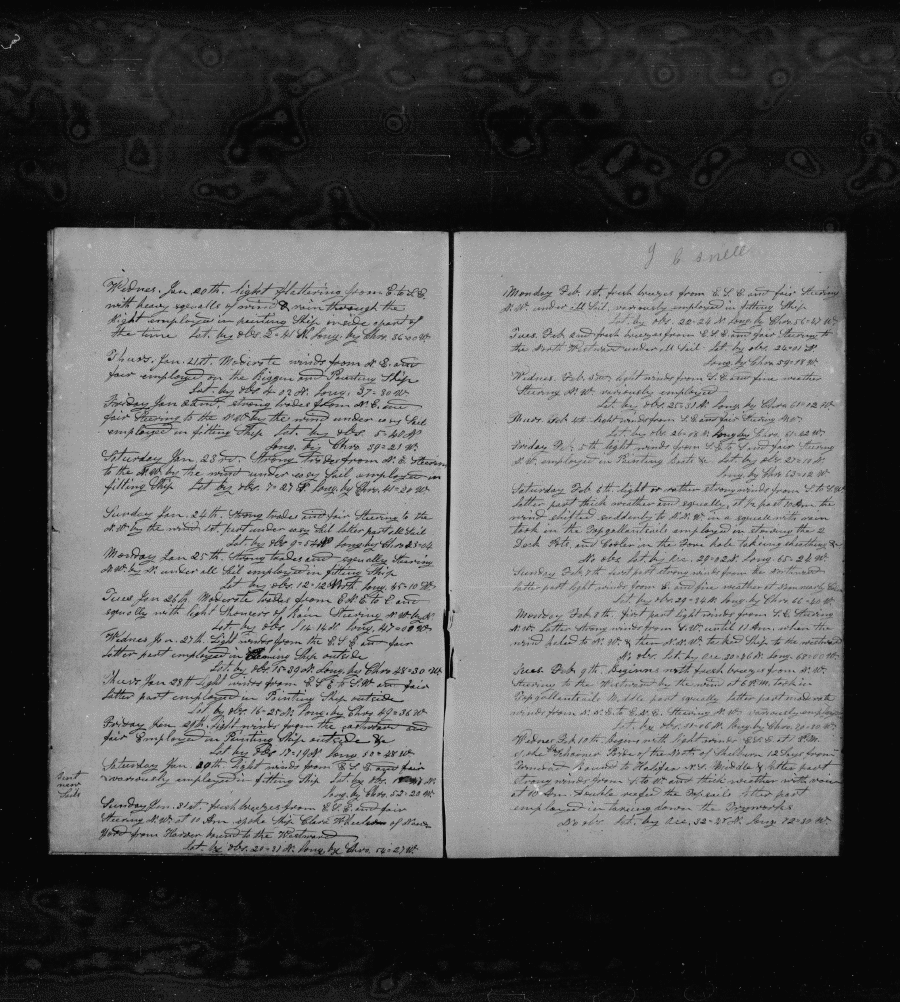 Wednes. Jan. 20th. light flattering from E to S.E.
with heavy squalls of wind & rain through the
Night employed in painting Ship inside a part of
the time Lat. by obs. 2-41 N. Long. by Chro. 36-00 W.
Thurs. Jan. 21st. Moderate winds from N.E. and
fair employed on the Riggin and Painting Ship
Lat. by Obs. 4-03 N. Long. 37-30 W.
Friday Jan 22nd. strong trades from N.E. and
fair Steering to the N.W. by the wind under easy Sail
employed in fitting Ship Lat. by obs. 5-40 N.
Long. by Chro. 39-21 W.
Saturday Jan. 23rd. Strong trades from N.E. Steering
to the N.W. by the wind under easy Sail employed in
fitting Ship Lat. by obs. 7-27 N. Long. by Chro. 41-20 W.
Sunday Jan. 24th Strong trades and fair Steering to the
N.W. by the wind 1st. part under easy Sail latter part all Sail
Lat. by obs. 9-54 N. Long by Chro 43-04
Monday Jan 25th. Strong trades and squally Steering
N.W. by N. under all Sail employed in fitting Ship
Lat. by obs 12-12 North Long. 45-10 W.
Tues Jan 26th. Moderate trades from E.N.E. to E and
squally with light Showers of Rain Steering N.W. by N.
Lat. by obs. 14-14 N. Long. 47-00 W.
Wednes Jan. 27th. Light winds from the E.S.E. and fair
latter part employed in Cleaning Ship outside
Lat. by obs. 15-39 N. Long. by Chro 48-30 W.
Thurs Jan 28th light winds from E.S.E. to S.W. and fair
latter part employed in Painting Ship outside
Lat. by obs 16-25 N. Long. by Chro 49-36 W.
Friday Jan. 29th. light winds from the eastward and
fair Employed in Painting Ship outside &c
Lat by Obs 17-19 N. Long. 50-48 W.
Saturday Jan. 30th light winds from E.S.E. and fair
variously employed in fitting Ship Lat by obs. N.
Long. by Chro. 52-20 W.
Bent
new
Sails
Sunday Jan. 31st. fresh breezes from E.S.E. and fair
Steering N.W. at 10 A.m. spoke Ship Clara Wheeler of New
York from Havre bound to the Westward
Lat. by obs. 20-31 N. Long. by Chro. 54-27 W.
J C Snell
Monday Feb. 1st. fresh breezes from E.S.E and fair Steering
N.W. under all Sail, variously employed in fitting Ship
Lat. by obs. 22-24 N. Long. by Chro. 56-47 W.
Tues. Feb. 2nd fresh breezes from E.S.E. and fair Steering to
the North Westward under all Sail Lat by obs. 24-11 N
Long by Chro 59-18 W.
Wednes. Feb. 3rd light winds from S.E and fine weather
Steering N.W. variously employed
Lat. by obs. 25-31 N. Long. by Chro 61-02 W.
Thurs. Feb 4th light winds from S.E and fair Steering N.W.
Lat by obs. 26-18 N. Long by Chro. 61-42 W.
Friday Feb. 5th. light winds from S.E and fair Steering
N.W. employed in Painting boats &c Lat by obs 27-10 N.
Long by Chro 63-10 W.
Saturday Feb 6th. light or rather strong winds from S. to S.W.
latter part thick weather and squally, at ½ past 10 A.m. the
wind shifted suddenly to N.N.W. in a squall with rain
took in the Topgallantsails employed in stowing the 2
Deck Pots, and Cooler in the Fore hole Taking sheathing &c
No obs. Lat. by Acc. 29-02 N. Long. 65-24 W.
Sunday Feb. 7th. first part strong winds from the northward
latter part light winds from E. and fine weather
Lat. by obs. 29-34 N. Long. by Chro 66-40 W.
Monday Feb 8th. first part light winds from S.E. Steering
N.W. Latter strong winds from S.W. until 11 A.m. when the
wind haled to N.W. & then N.N.W. tacked Ship to the westward
No obs. Lat. by Acc 30-36 N. Long. 68-00 W.
Tues. Feb. 9th. Begins with fresh breezes from N.W.
Steering to the Westward by the wind at 6 P.M. took in
Topgallantsails Middle part squally latter part moderate
winds from N.N.E. to E.N.E. Steering N.W. variously employed
Lat. by obs. 31-01 N. Long by Chro. 70-30 W.
Wednes Feb. 10th. begins with light winds E.S.E. at 3 P.M.
spoke the Schooner Pride of the North of Shelburn 12 days from
Bermuda bound to Halifax N.S. Middle & latter part
strong winds from S to W. and thick weather with rain
at 10 A.m. double reefed the Topsails latter part
employed in taking down the Tryworks
No obs. Lat. by Acc. 32-45 N. Long. 72-30 W.